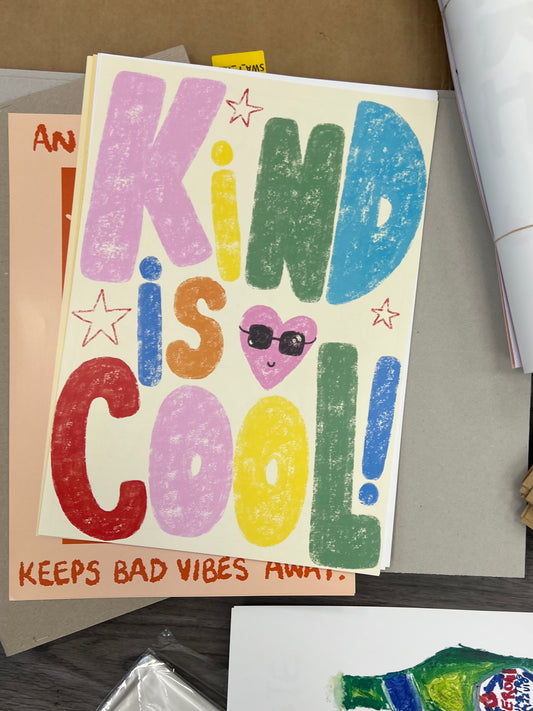 KiND
iS
COOL!
AN
KEEPS BAD VIBES AWAY.